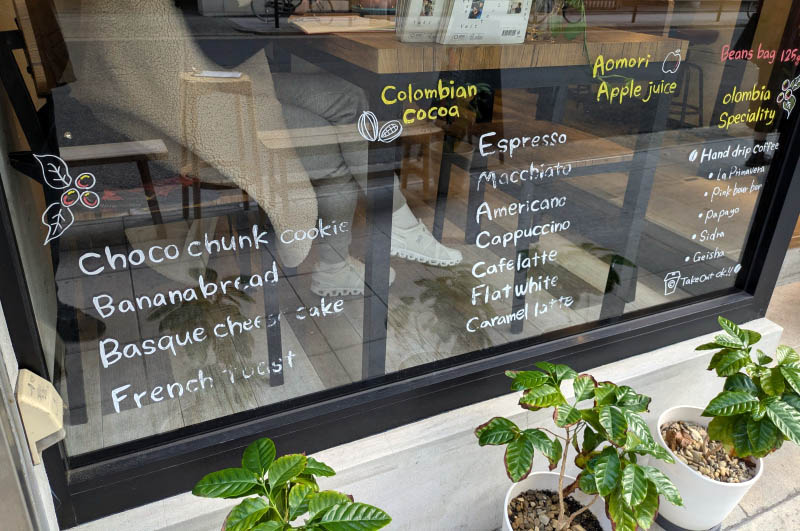 Choco chunk cookie
Bananabread
Basque cheese cake
French Toast
Colombian
cocoa
Espresso
Macchiato
Americano
Cappuccino
Cafe latte
Flat white
Caramel latte
Aomori
Apple juice
Beans bag 125g
olombia
Speciality
Hand drip coffee
• La Primavera
• Pink bourbon
• Papayo
• Sidra
• Geisha
Take Out ok!!